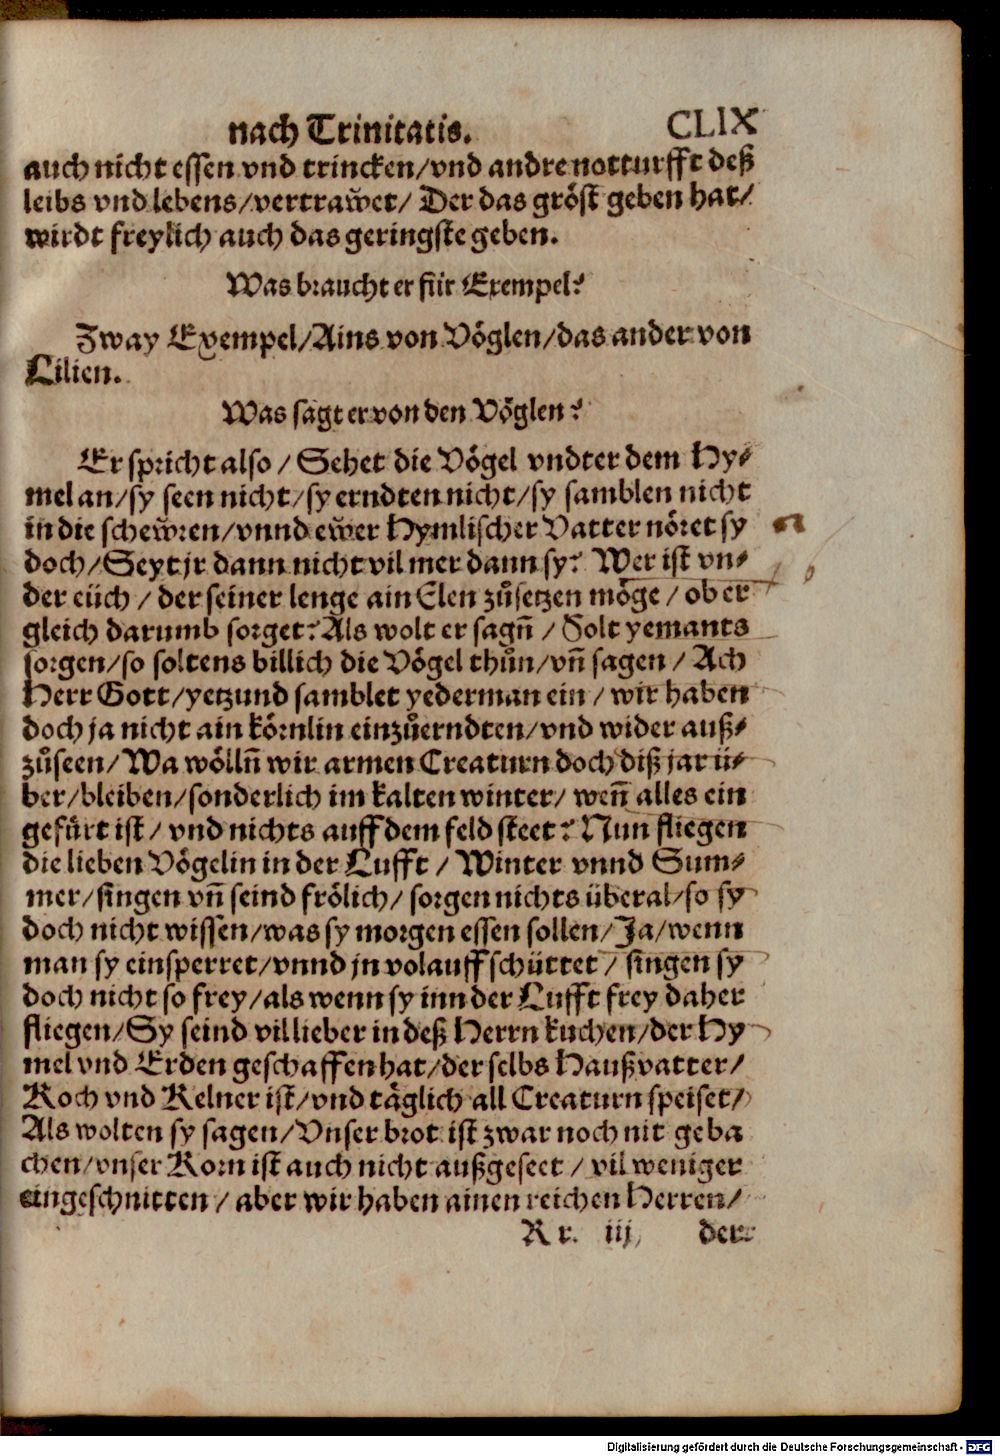 nach Trinitatis.
CLIX
auch nicht essen vnd trincken/vnd andre notturfft deß
leibs vnd lebens/vertraw̃et/ Der das gröst geben hat/
wirdt freylich auch das geringste geben.
Was braucht er für Exempel?
Zway Exempel/Ains von Vöglen/das ander von
Lilien.
Was sagt er von den Vöglen?
Er spricht also / Sehet die Vögel vndter dem Hy⸗
mel an/sy seen nicht/sy erndten nicht/sy samblen nicht
in die schew̃ren/vnnd ew̃er Hymlischer Vatter nöret sy
doch/Seyt jr dann nicht vil mer dann sy? Wer ist vn⸗
der eüch / der seiner lenge ain Elen zůsetzen möge / ob er
gleich darumb sorget? Als wolt er sagñ / Solt yemants
sorgen/so soltens billich die Vögel thůn/vñ sagen / Ach
Herr Gott/yetzund samblet yederman ein / wir haben
doch ja nicht ain körnlin einzůerndten/vnd wider auß⸗
zůseen/Wa wöllñ wir armen Creaturn doch diß jar ü⸗
ber/bleiben/sonderlich im kalten winter/ weñ alles ein
gefürt ist/ vnd nichts auff dem feld steet? Nun fliegen
die lieben Vögelin in der Lufft / Winter vnnd Sum⸗
mer/singen vñ seind frölich/ sorgen nichts überal/so sy
doch nicht wissen/was sy morgen essen sollen/Ja/wenn
man sy einsperret/vnnd jn volauff schüttet / singen sy
doch nicht so frey/als wenn sy inn der Lufft frey daher
fliegen/Sy seind vil lieber in deß Herrn kuchen/der Hy
mel vnd Erden geschaffen hat/der selbs Haußvatter/
Koch vnd Kelner ist/vnd täglich all Creaturn speiset/
Als wolten sy sagen/Vnser brot ist zwar noch nit geba
chen/vnser Korn ist auch nicht außgeseet / vil weniger
eingeschnitten / aber wir haben ainen reichen Herren/
R r. iij, der
Digitalisierung gefördert durch die Deutsche Forschungsgemeinschaft - DFG